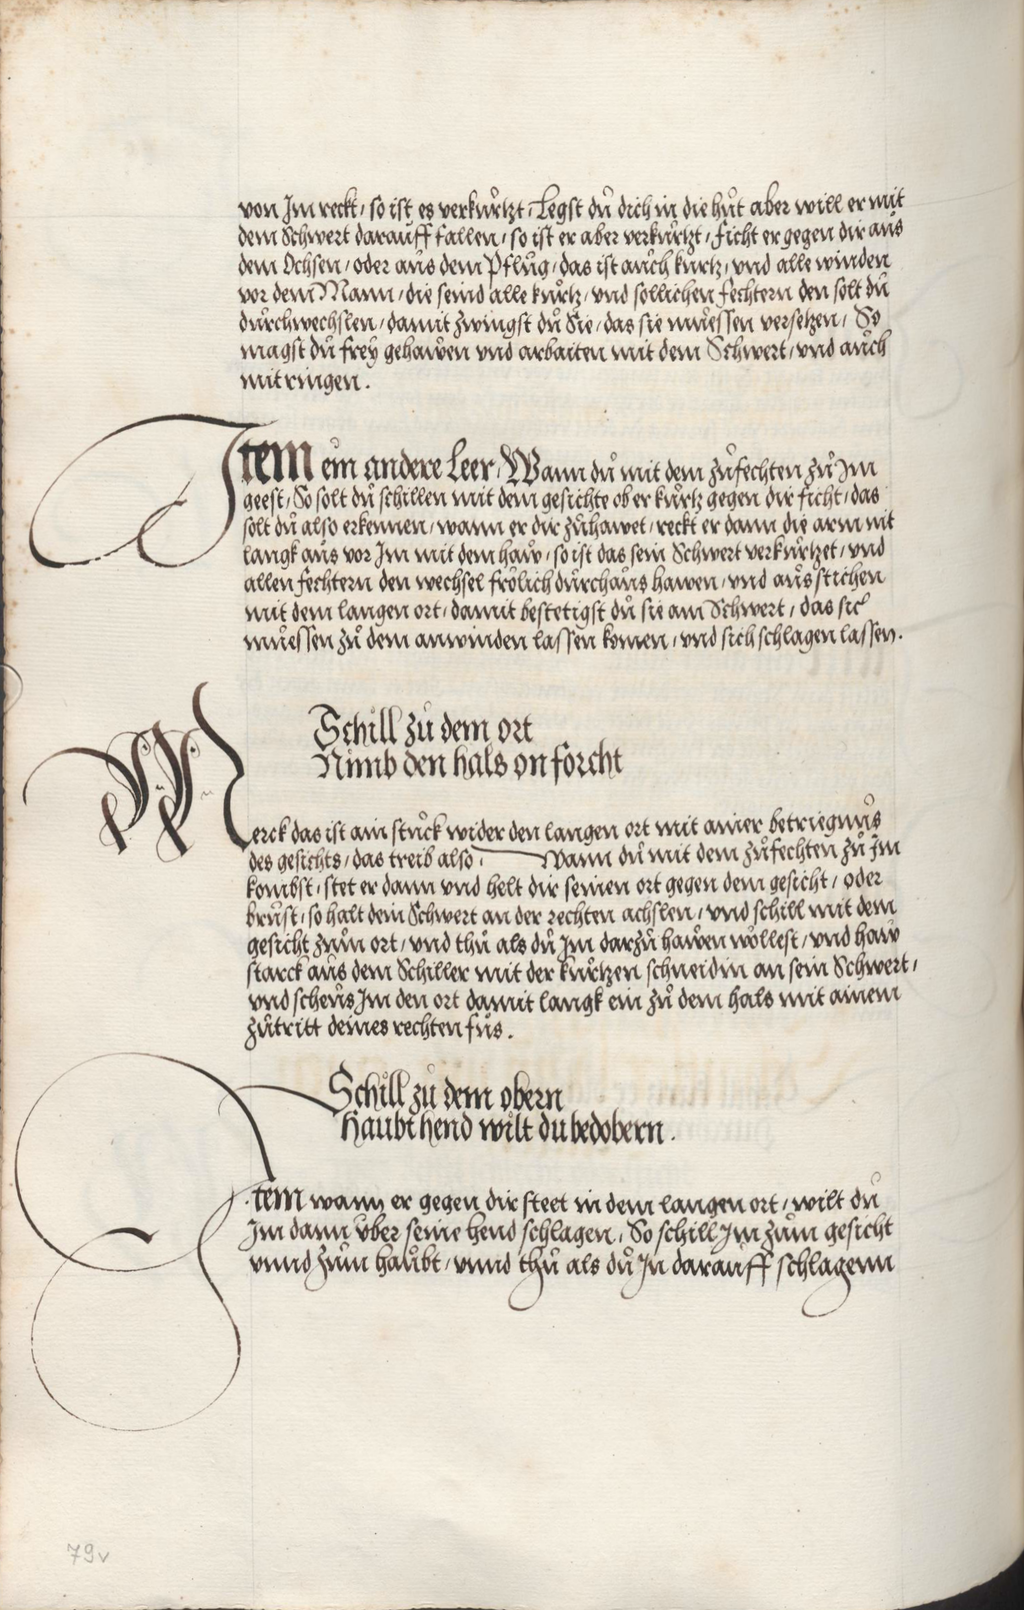 von Jm reckt / so ist es verkürtzt / Legst dů dich in die hůt aber will er mit
dem Schwert darauff fallen / so ist er aber verkürtzt / ficht er gegen dir aus
dem Ochsen / oder aus dem Pflůg / das ist auch kurtz / vnd alle winden
vor dem Mann / die seind alle kurtz / vnd sollichen fechtern den solt dů
durchwechslen / damit zwingst dů Sie / das sie müessen versetzen / So
magst dů frey gehawen vnd arbaiten mit dem Schwert / vnd auch
mit ringen .
Jtem ein andere Leer / Wann dů mit dem zůfechten zů Jm
geest / So solt dů schillen mit dem gesichte ob er kurtz gegen dir ficht / das
solt dů also erkennen / wann er dir zůhawet / reckt er dann die arm nit
langk aus vor Jm mit dem haw / so ist das sein Schwert verkürtzet / vnd
allen fechtern den wechsel frölich durchaus hawen / vnd aus stichen
mit dem langen ort / damit bestetigst dů sie am Schwert / das sie
müessen zů dem anwinden lassen komen / vnd sich schlagen lassen .
Schill zů dem ort
Nimb den hals on forcht
Merck das ist ain stuck wider den langen ort mit ainer betriegnus
des gesichts / das treib also / Wann dů mit dem zůfechten zů Jm
kombst / stet er dann vnd helt dir seinen ort gegen dem gesicht / oder
brust / so halt dein Schwert an der rechten achslen / vnd schill mit dem
gesicht zum ort / vnd thů als dů Jm darzů hawen wöllest / vnd haw
starck aus dem Schiller mit der kurtzen schneid in an sein Schwert /
vnd scheus Jm den ort damit langk ein zů dem hals mit ainem
zůtritt deines rechten fus .
Schill zů dem obern
Haubt hend wilt du bedobern .
Jtem wann er gegen dir steet in dem langen ort / wilt du
Jm dann über seine hend schlagen / So schill Jm zum gesicht
vnnd zum haubt / vnnd thů als dů Jn darauff schlagenn
79v